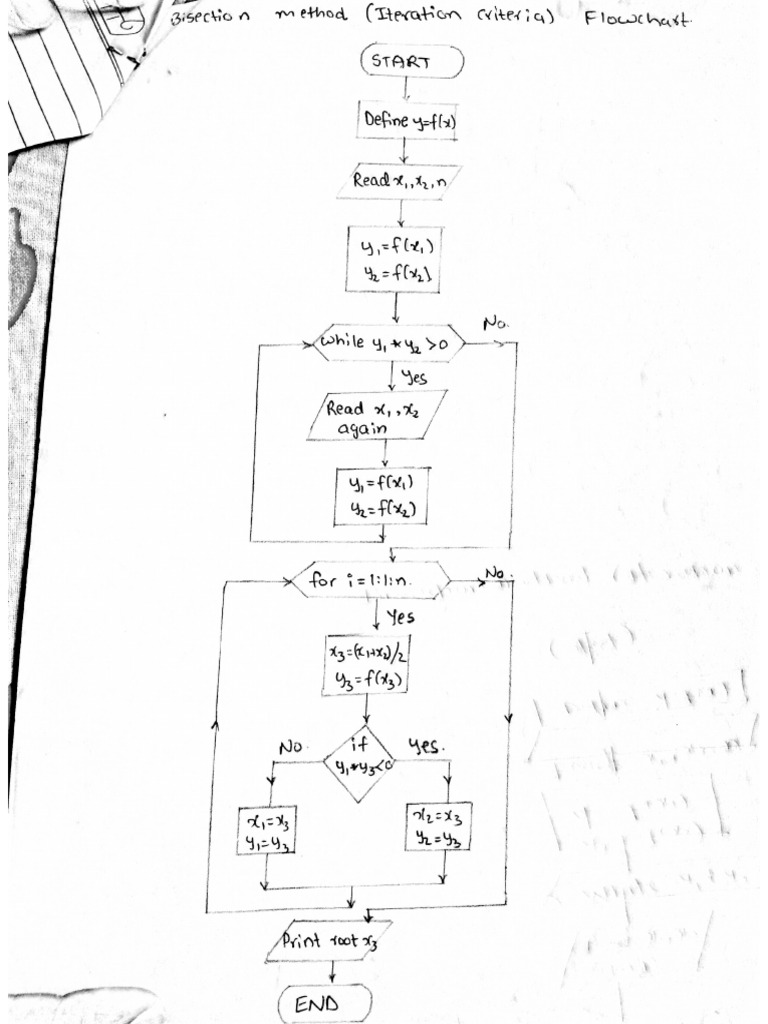 Bisection method (Iteration criteria) Flowchart.
START
Define y=f(x)
Read x₁, x₂, n
y₁=f(x₁)
y₂=f(x₂)
while y₁*y₂>0
No.
Yes
Read x₁, x₂
again
y₁=f(x₁)
y₂=f(x₂)
for i=1:1:n.
No.
Yes
x₃=(x₁+x₂)/2
y₃=f(x₃)
No.
if
y₁*y₃<0
Yes.
x₁=x₃
y₁=y₃
x₂=x₃
y₂=y₃
Print root x₃
END